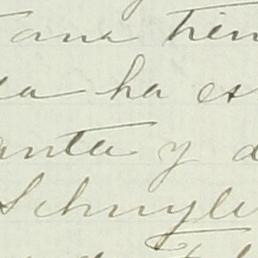 ana tien
da ha es
anta y d
Schuyle